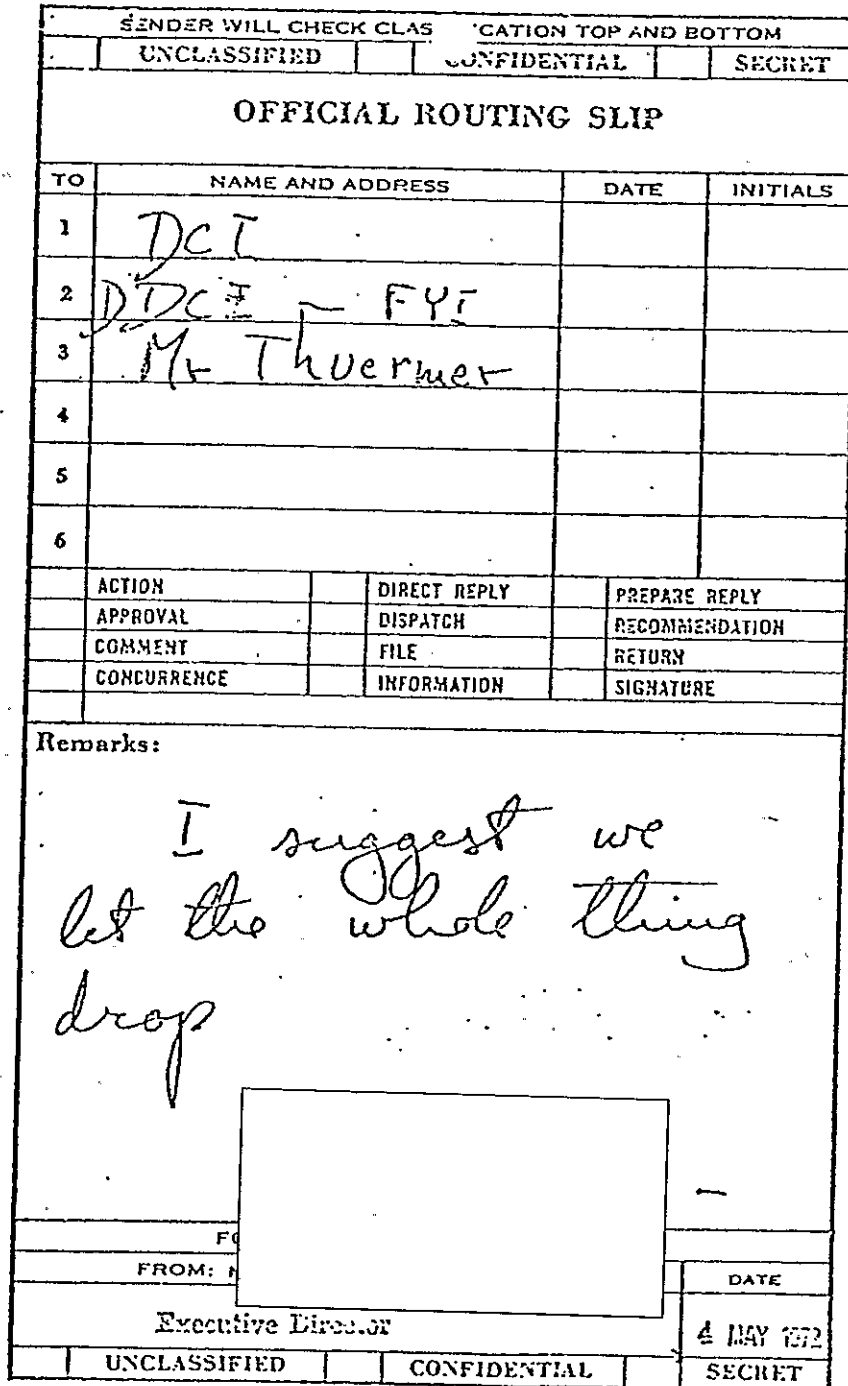 SENDER WILL CHECK CLAS 'CATION TOP AND BOTTOM
UNCLASSIFIED CONFIDENTIAL SECRET
OFFICIAL ROUTING SLIP
TO NAME AND ADDRESS DATE INITIALS
1 DCI
2 DDCI — FYI
3 Mr Thuermer
4
5
6
ACTION DIRECT REPLY PREPARE REPLY
APPROVAL DISPATCH RECOMMENDATION
COMMENT FILE RETURN
CONCURRENCE INFORMATION SIGNATURE
Remarks:
I suggest we
let the whole thing
drop
FO
FROM: N
DATE
Executive Director 4 MAY 1972
UNCLASSIFIED CONFIDENTIAL SECRET